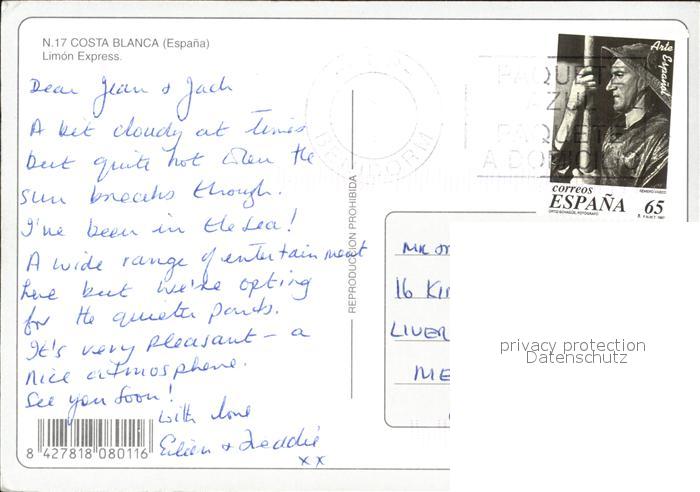 N.17 COSTA BLANCA (España)
Limón Express.
Dear Jean & Jack
A bit cloudy at times
but quite hot when the
sun breaks through.
I've been in the sea!
A wide range of entertainment
here but we're opting
for the quieter parts.
It's very pleasant – a
nice atmosphere.
See you soon!
With love
Eileen & Freddie
xx
8 427818 080116
REPRODUCCION PROHIBIDA
BENIDORM
PAQUETE
AZUL
PAQUETE
A DOMICILIO
Arte Español
correos
ESPAÑA 65
MR
16 KIN
LIVER
ME
privacy protection
Datenschutz